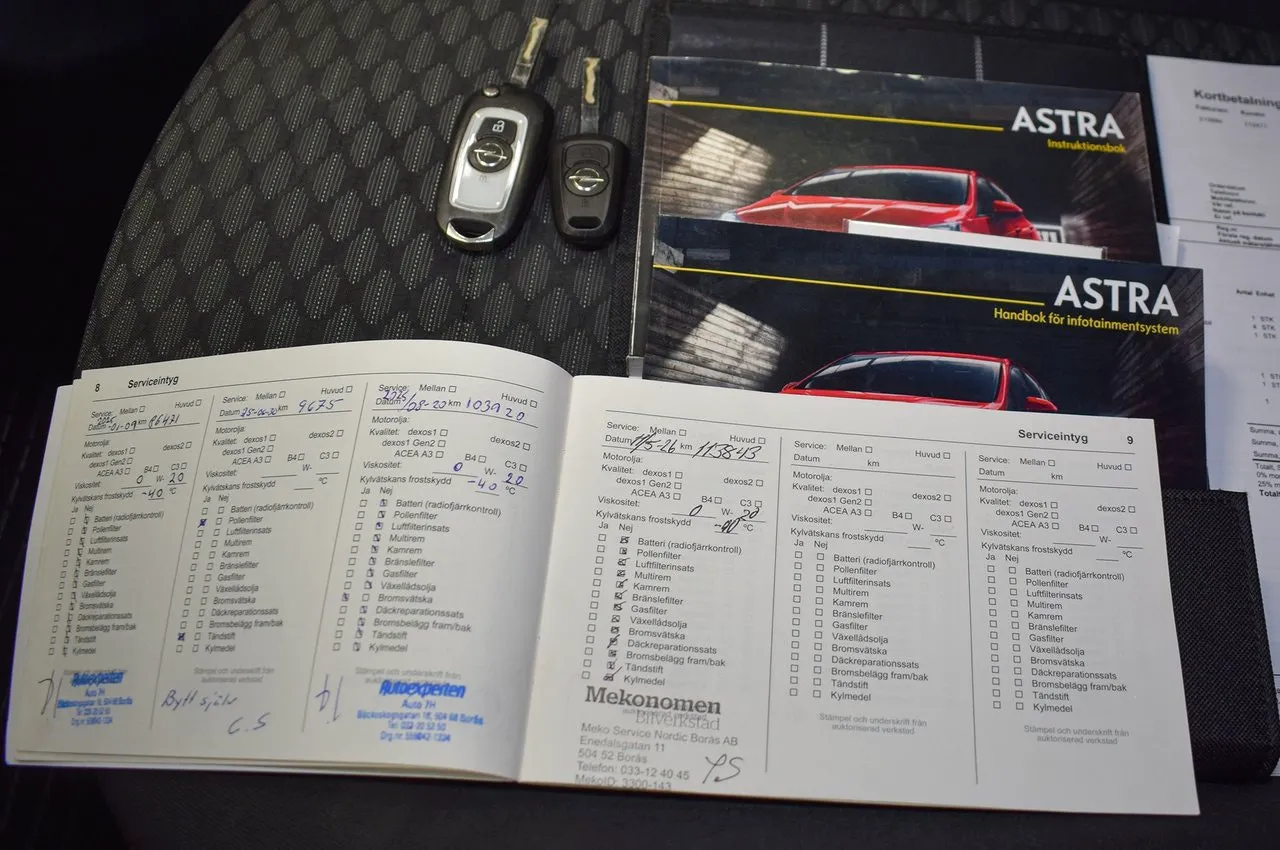 ASTRA
Instruktionsbok
ASTRA
Handbok för infotainmentsystem
Kortbetalning
Orderdatum
Telefonnr
Mobiltelefonnr
Vår ref.
Namn på kontakt
Er ref.
Reg.nr
Första reg. datum
Antal Enhet
1 STK
4 STK
1 STK
1 STK
1 STK
1
Summa,
Summa,
8 Serviceintyg
Service: Mellan Huvud
Datum 2025-01-09 km 86471
Motorolja:
Kvalitet: dexos1 dexos2
dexos1 Gen2
ACEA A3 B4 C3
Viskositet: 0 W- 20
Kylvätskans frostskydd -40 °C
Ja Nej
Batteri (radiofjärrkontroll)
Pollenfilter
Luftfilterinsats
Multirem
Kamrem
Bränslefilter
Gasfilter
Växellådsolja
Bromsvätska
Däckreparationssats
Bromsbelägg fram/bak
Tändstift
Kylmedel
Autoexperten
Auto 7H
Bäckeskogsgatan 16, 504 68 Borås
Tel. 033-20 52 50
Service: Mellan Huvud
Datum 25-06-30 km 9675
Motorolja:
Kvalitet: dexos1 dexos2
dexos1 Gen2
ACEA A3 B4 C3
Viskositet: W-
Kylvätskans frostskydd °C
Ja Nej
Batteri (radiofjärrkontroll)
Pollenfilter
Luftfilterinsats
Multirem
Kamrem
Bränslefilter
Gasfilter
Växellådsolja
Bromsvätska
Däckreparationssats
Bromsbelägg fram/bak
Tändstift
Kylmedel
Stämpel och underskrift från
auktoriserad verkstad
Bytt själv
C.S
Service: Mellan Huvud
Datum 2025/08-20 km 103920
Motorolja:
Kvalitet: dexos1 dexos2
dexos1 Gen2
ACEA A3 B4 C3
Viskositet: 0 W- 20
Kylvätskans frostskydd -40 °C
Ja Nej
Batteri (radiofjärrkontroll)
Pollenfilter
Luftfilterinsats
Multirem
Kamrem
Bränslefilter
Gasfilter
Växellådsolja
Bromsvätska
Däckreparationssats
Bromsbelägg fram/bak
Tändstift
Kylmedel
Stämpel och underskrift från
Autoexperten
Auto 7H
Bäckeskogsgatan 16, 504 68 Borås
Tel. 033-20 52 50
Serviceintyg 9
Service: Mellan Huvud
Datum 11/5-26 km 113843
Motorolja:
Kvalitet: dexos1 dexos2
dexos1 Gen2
ACEA A3 B4 C3
Viskositet: 0 W- 20
Kylvätskans frostskydd °C
Ja Nej
Batteri (radiofjärrkontroll)
Pollenfilter
Luftfilterinsats
Multirem
Kamrem
Bränslefilter
Gasfilter
Växellådsolja
Bromsvätska
Däckreparationssats
Bromsbelägg fram/bak
Tändstift
Kylmedel
Mekonomen
Bilverkstad
Meko Service Nordic Borås AB
Enedalsgatan 11
504 52 Borås
Telefon: 033-12 40 45
MekoID: 3300-143
YS
Service: Mellan Huvud
Datum km
Motorolja:
Kvalitet: dexos1 dexos2
dexos1 Gen2
ACEA A3 B4 C3
Viskositet: W-
Kylvätskans frostskydd °C
Ja Nej
Batteri (radiofjärrkontroll)
Pollenfilter
Luftfilterinsats
Multirem
Kamrem
Bränslefilter
Gasfilter
Växellådsolja
Bromsvätska
Däckreparationssats
Bromsbelägg fram/bak
Tändstift
Kylmedel
Stämpel och underskrift från
auktoriserad verkstad
Service: Mellan Huvud
Datum km
Motorolja:
Kvalitet: dexos1 dexos2
dexos1 Gen2
ACEA A3 B4 C3
Viskositet: W-
Kylvätskans frostskydd °C
Ja Nej
Batteri (radiofjärrkontroll)
Pollenfilter
Luftfilterinsats
Multirem
Kamrem
Bränslefilter
Gasfilter
Växellådsolja
Bromsvätska
Däckreparationssats
Bromsbelägg fram/bak
Tändstift
Kylmedel
Stämpel och underskrift från
auktoriserad verkstad